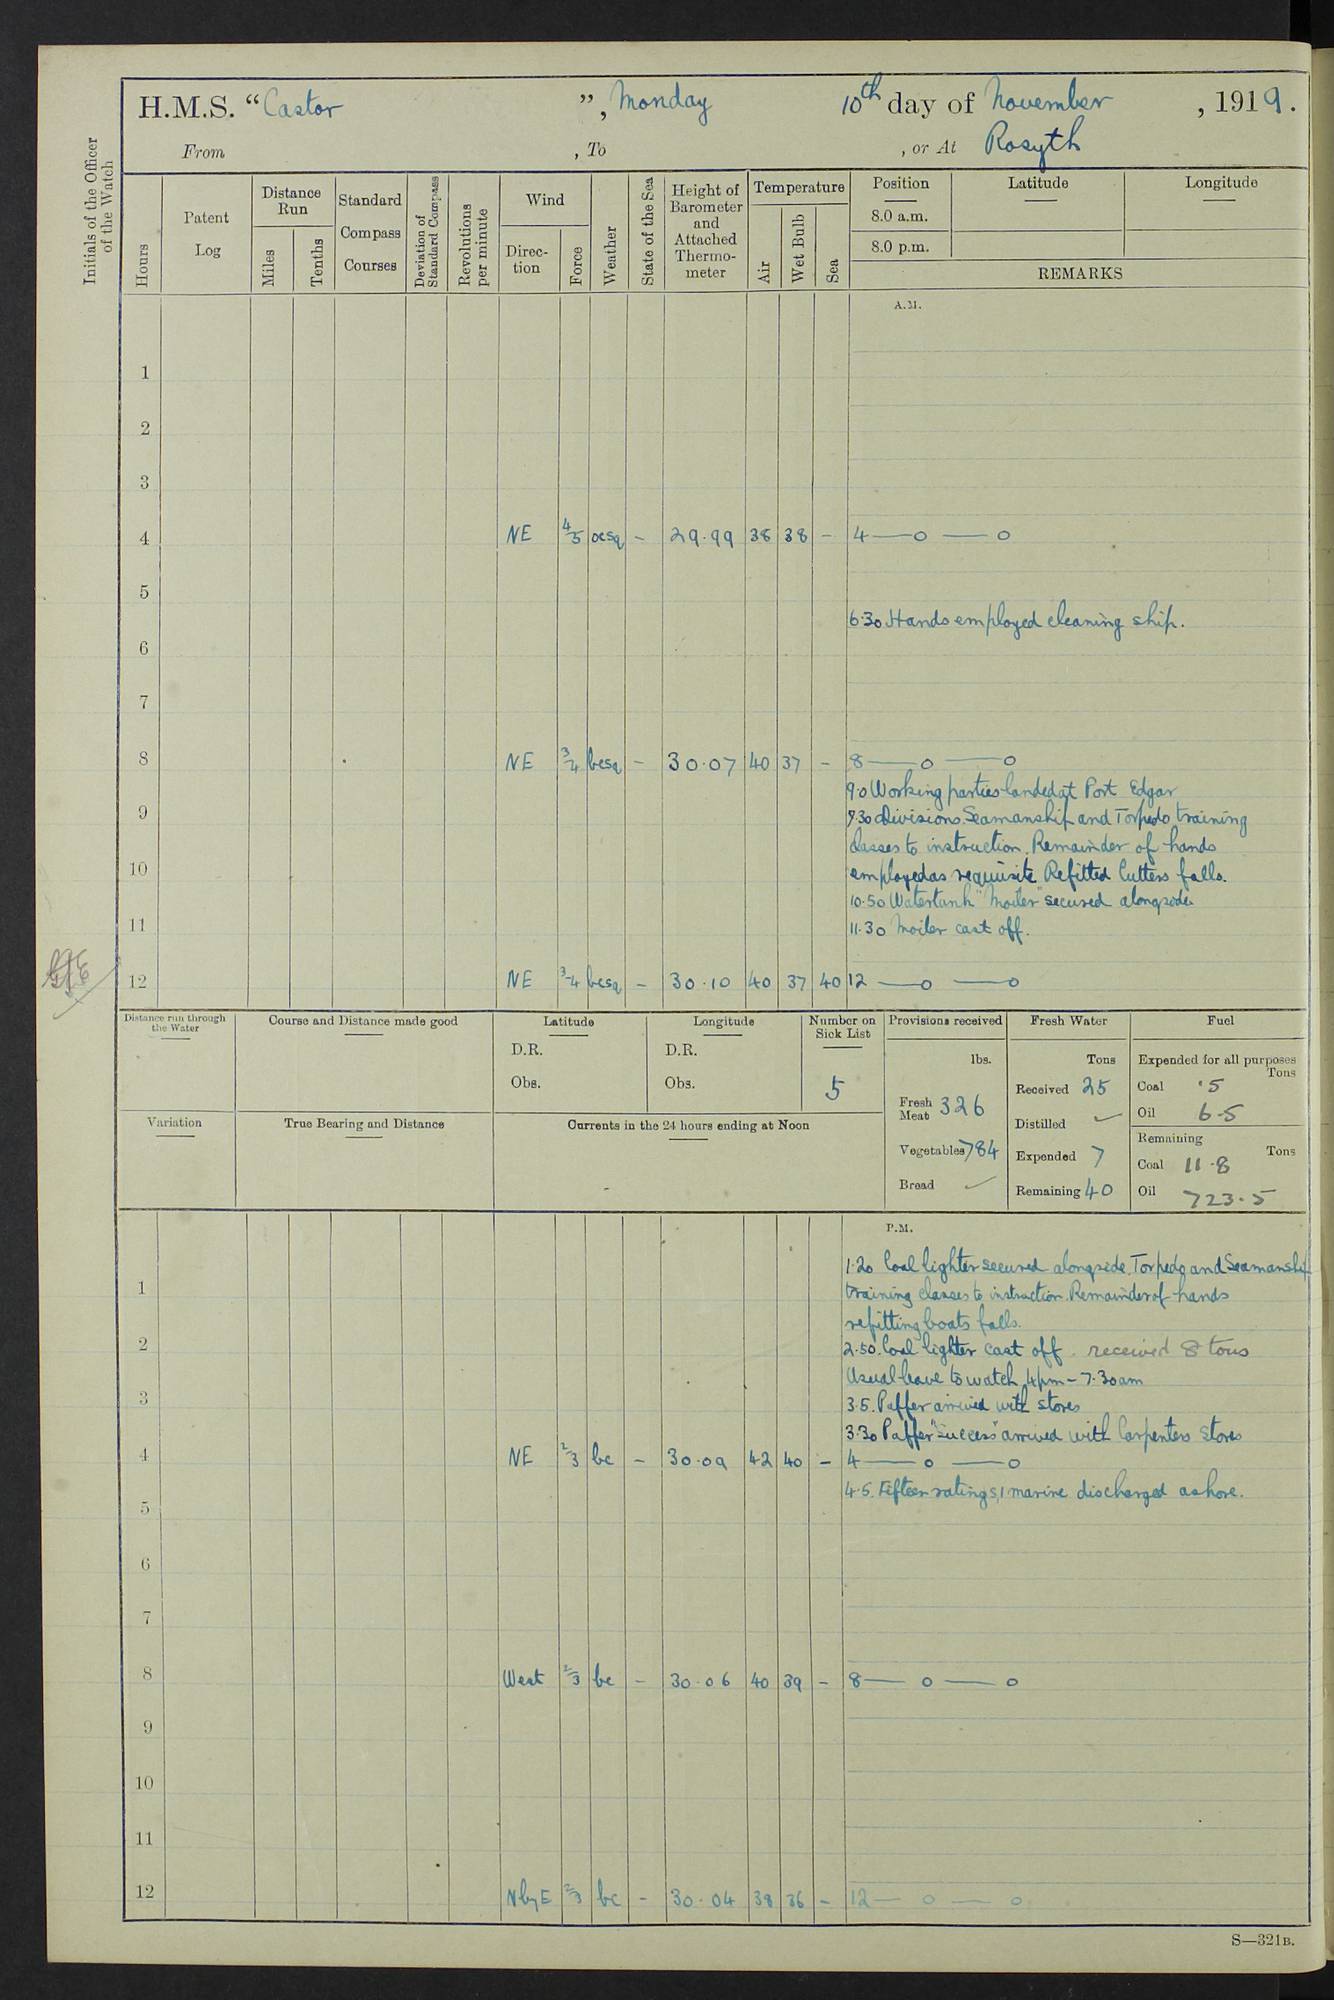 H.M.S. “Castor”, Monday 10th day of November, 1919.
From , To , or At Rosyth
Initials of the Officer of the Watch
Hours
Patent Log
Distance Run
Miles
Tenths
Standard Compass Courses
Deviation of Standard Compass
Revolutions per minute
Wind
Direc-tion
Force
Weather
State of the Sea
Height of Barometer and Attached Thermo-meter
Temperature
Air
Wet Bulb
Sea
Position Latitude Longitude
8.0 a.m.
8.0 p.m.
REMARKS
A.M.
1
2
3
4 NE 4/5 ocsq - 29.99 38 38 - 4 — o — o
5
6.30 Hands employed cleaning ship.
6
7
8 NE 3/4 bcsq - 30.07 40 37 - 8 — o — o
9.0 Working parties landed at Port Edgar
9 9.30 Divisions. Seamanship and Torpedo training
classes to instruction. Remainder of hands
10 employed as requisite Refitted Cutters falls.
10.50 Watertank "Moiler" secured alongside
11 11.30 Moiler cast off.
12 NE 3-4 bcsq - 30.10 40 37 40 12 — o — o
Distance run through the Water
Course and Distance made good
Latitude
D.R.
Obs.
Longitude
D.R.
Obs.
Number on Sick List
5
Provisions received
lbs.
Fresh Meat 326
Vegetables 784
Bread ✓
Fresh Water
Tons
Received 25
Distilled ✓
Expended 7
Remaining 40
Fuel
Expended for all purposes
Tons
Coal .5
Oil 6.5
Remaining
Tons
Coal 11.8
Oil 723.5
Variation
True Bearing and Distance
Currents in the 24 hours ending at Noon
P.M.
1.20 Coal lighter secured alongside. Torpedo and Seamanship
1 training classes to instruction. Remainder of hands
refitting boats falls.
2 2.50. Coal lighter cast off. received 8 tons
Usual leave to watch 4pm - 7.30am
3 3.5. Puffer arrived with stores
3.30 Puffer "Success" arrived with Carpenters Stores
4 NE 2/3 bc - 30.09 42 40 - 4 — o — o
4.5. Fifteen ratings, 1 marine discharged ashore.
5
6
7
8 West 2/3 bc - 30.06 40 39 - 8 — o — o
9
10
11
12 NbyE 2/3 bc - 30.04 38 36 - 12 — o — o
S—321B.